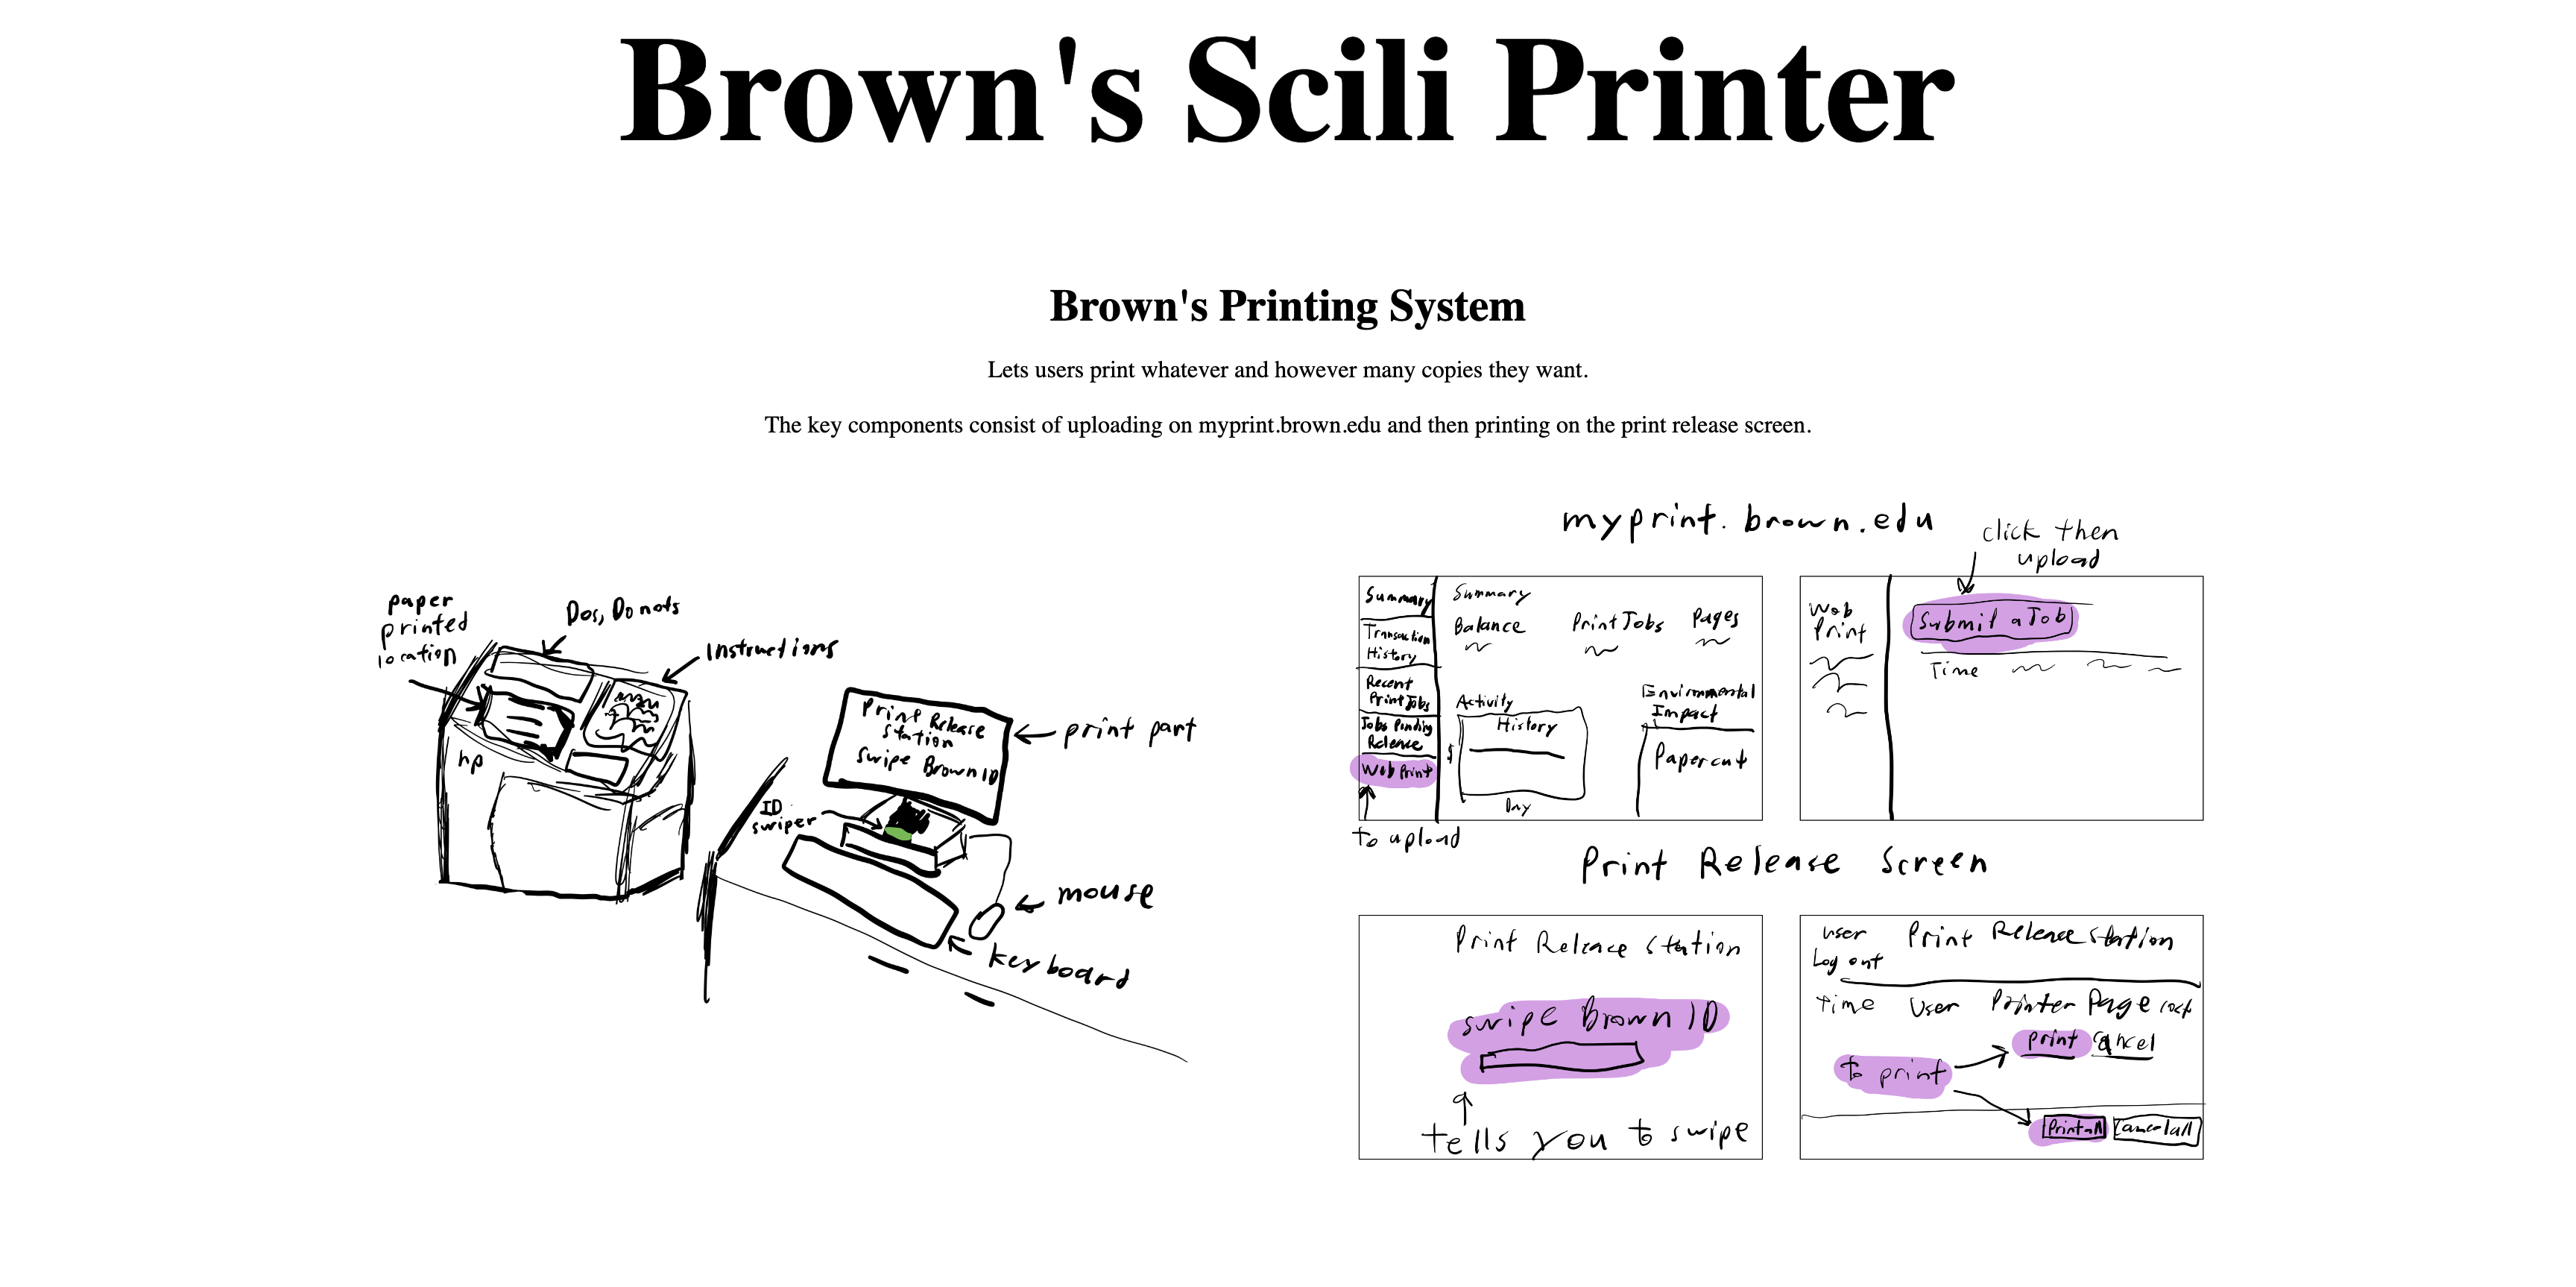 Brown's Scili Printer
Brown's Printing System
Lets users print whatever and however many copies they want.
The key components consist of uploading on myprint.brown.edu and then printing on the print release screen.
paper
printed
location
Dos, Do nots
Instructions
hp
Print Release
Station
Swipe Brown ID
print part
ID
swiper
mouse
keyboard
myprint.brown.edu
click then
upload
Summary
Transaction
History
Recent
Print Jobs
Jobs Pending
Release
Web Print
to upload
Summary
Balance
Print Jobs
Pages
Activity
History
$
Day
Environmental
Impact
Papercut
Web
Print
Submit a Job
Time
Print Release Screen
Print Release Station
swipe Brown ID
tells you to swipe
user
Log out
Print Release Station
Time User Printer Page cost
print cancel
to print
Print all Cancel all